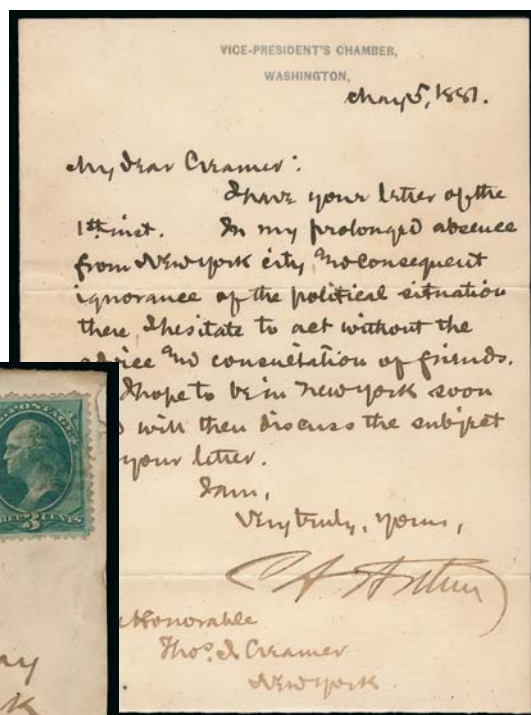 VICE-PRESIDENT'S CHAMBER,
WASHINGTON,
May 5, 1881.
My Dear Creamer:
I have your letter of the
1st inst. In my prolonged absence
from New York city and consequent
ignorance of the political situation
there, I hesitate to act without the
advice and consultation of friends.
I hope to be in New York soon
will then discuss the subject
your letter.
I am,
Very truly, yours,
C A Arthur
Honorable
Thos. J. Creamer
New York.
POSTAGE
3 CENTS